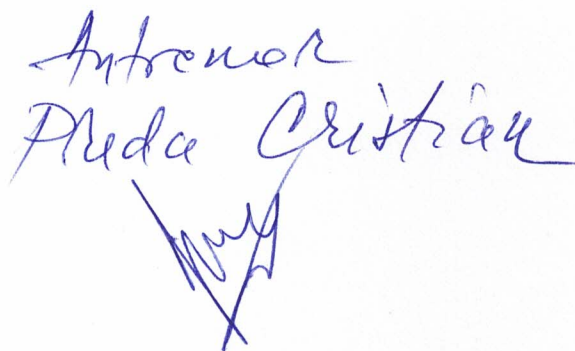 Antrenor
Preda Cristian